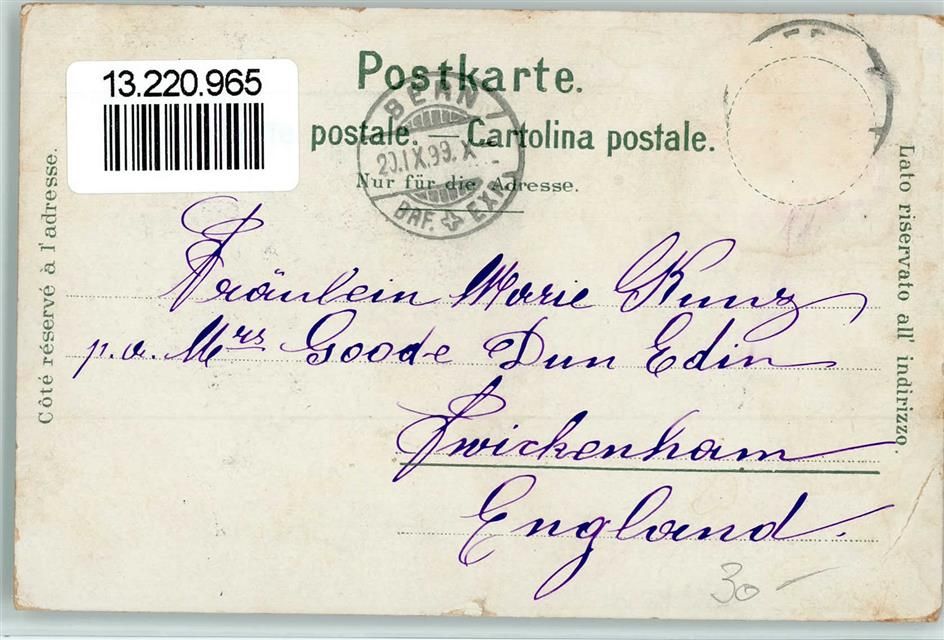 13.220.965
Postkarte.
postale. — Cartolina postale.
Nur für die Adresse.
BERN
20.IX.99.X
BRF. EXP.
Côté réservé à l'adresse.
Lato riservato all' indirizzo.
Fräulein Marie Kunz
p. a. Mrs Goode Dun Edin
Twickenham
England.
30 –